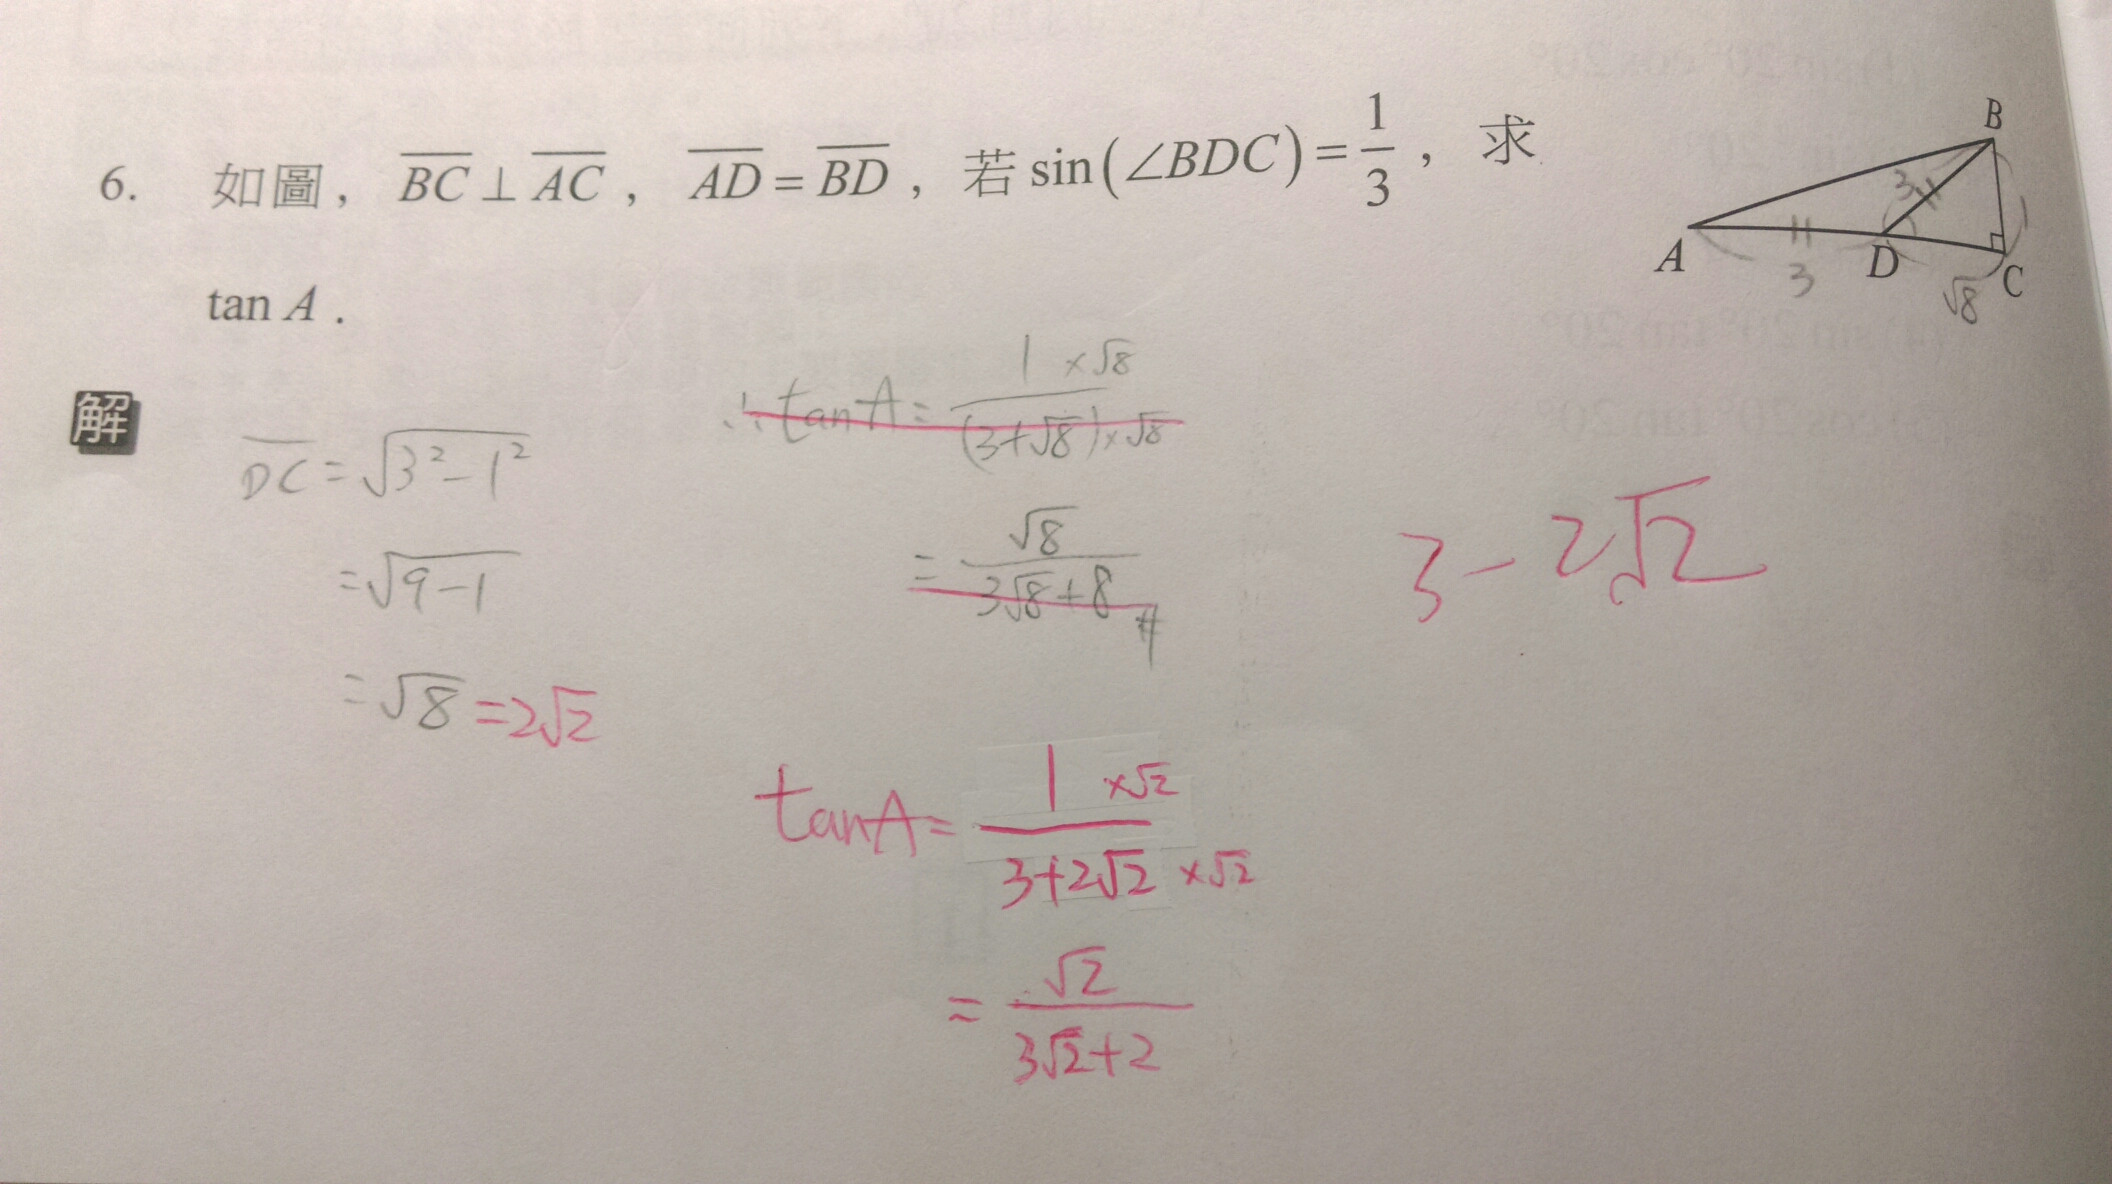 6. 如圖，BC⊥AC，AD=BD，若sin(∠BDC)=1/3，求
tan A．
B
A
D
C
3
3
√8
解
DC=√3²-1²
=√9-1
=√8=2√2
∴tanA=1×√8/(3+√8)×√8
=√8/3√8+8
3-2√2
tanA=1×√2/3+2√2×√2
=√2/3√2+2